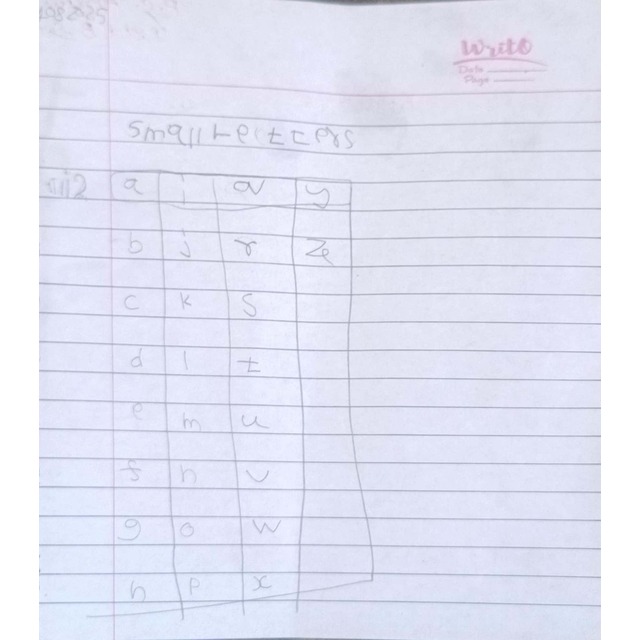 Write
Date
Page
small letters
a i q y
b j r z
c k s
d l t
e m u
f n v
g o w
h p x